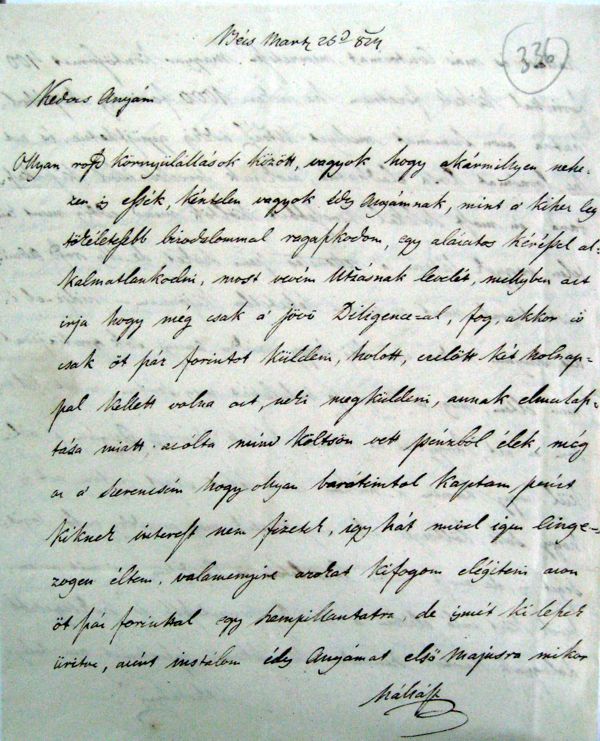 Bécs Martz 26d 824
336
Kedves Anyám
Ollyan rosz környülállások között, vagyok hogy akármillyen nehe-
zen is essék, kéntelen vagyok édes Anyámnak, mint a' kihez leg
tökélletesebb bizodalommal ragaszkodom, egy alázatos kéréssel al-
kalmatlankodni, most vevém levelét, mellyben azt
irja hogy még csak a' jövő Diligence-al, fog, akkor is
csak öt pár forintot küldeni, holott, ezelőtt két holnap-
pal kellett volna azt, neki megküldeni, annak elmulasz-
tása miatt azólta mind költsön vett pénzből élek, még
az a' szerencsém hogy ollyan barátimtol kaptam pénzt
kiknek interest nem fizetek, igy hát mivel igen
éltem, valamenyire azokat kifogom elégiteni azon
öt pár forinttal egy szempillantatra, de ismét ki lesznek
üritve, azért instálom édes Anyámat első Majusra mikor